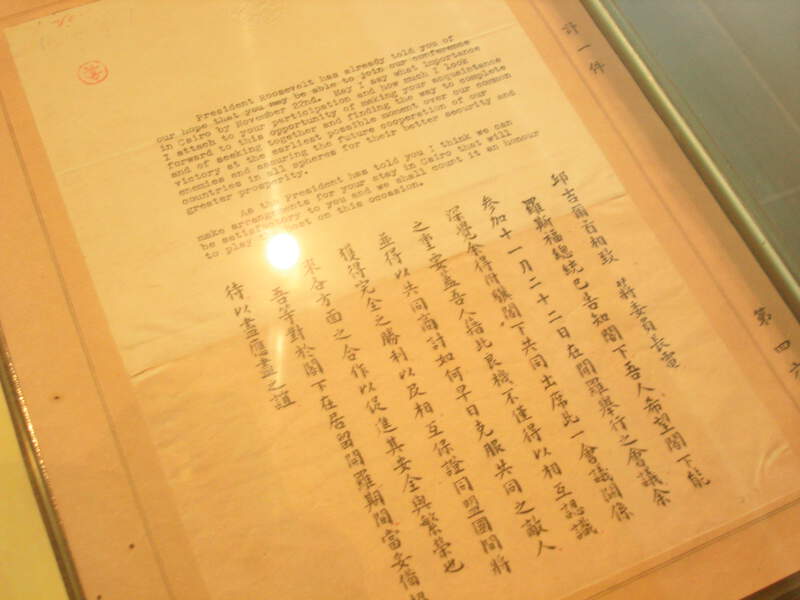 President Roosevelt has already told you of
our hope that you may be able to join our conference
in Cairo by November 22nd. May I say what importance
I attach to your participation and how much I look
forward to this opportunity of making your acquaintance
and of seeking together and finding the way to complete
victory at the earliest possible moment over our common
enemies and ensuring the future cooperation of our
countries in all spheres for their better security and
greater prosperity.
As the President has told you I think we can
make arrangements for your stay in Cairo that will
be satisfactory to you and we shall count it an honour
to play the host on this occasion.
計一件
第四
邱吉爾首相致 蔣委員長電
羅斯福總統已告知閣下吾人希望閣下能
參加十一月二十二日在開羅舉行之會議余
深覺余得附驥閣下共同出席此一會議關係
之重要蓋吾人藉此良機不僅得以相互認識
並得以共同商計如何早日克服共同之敵人
獲得完全之勝利以及相互保證同盟國間將
來各方面之合作以促進其安全與繁榮也
吾等對於閣下在居留開羅期間當妥備招
待以盡應盡之誼